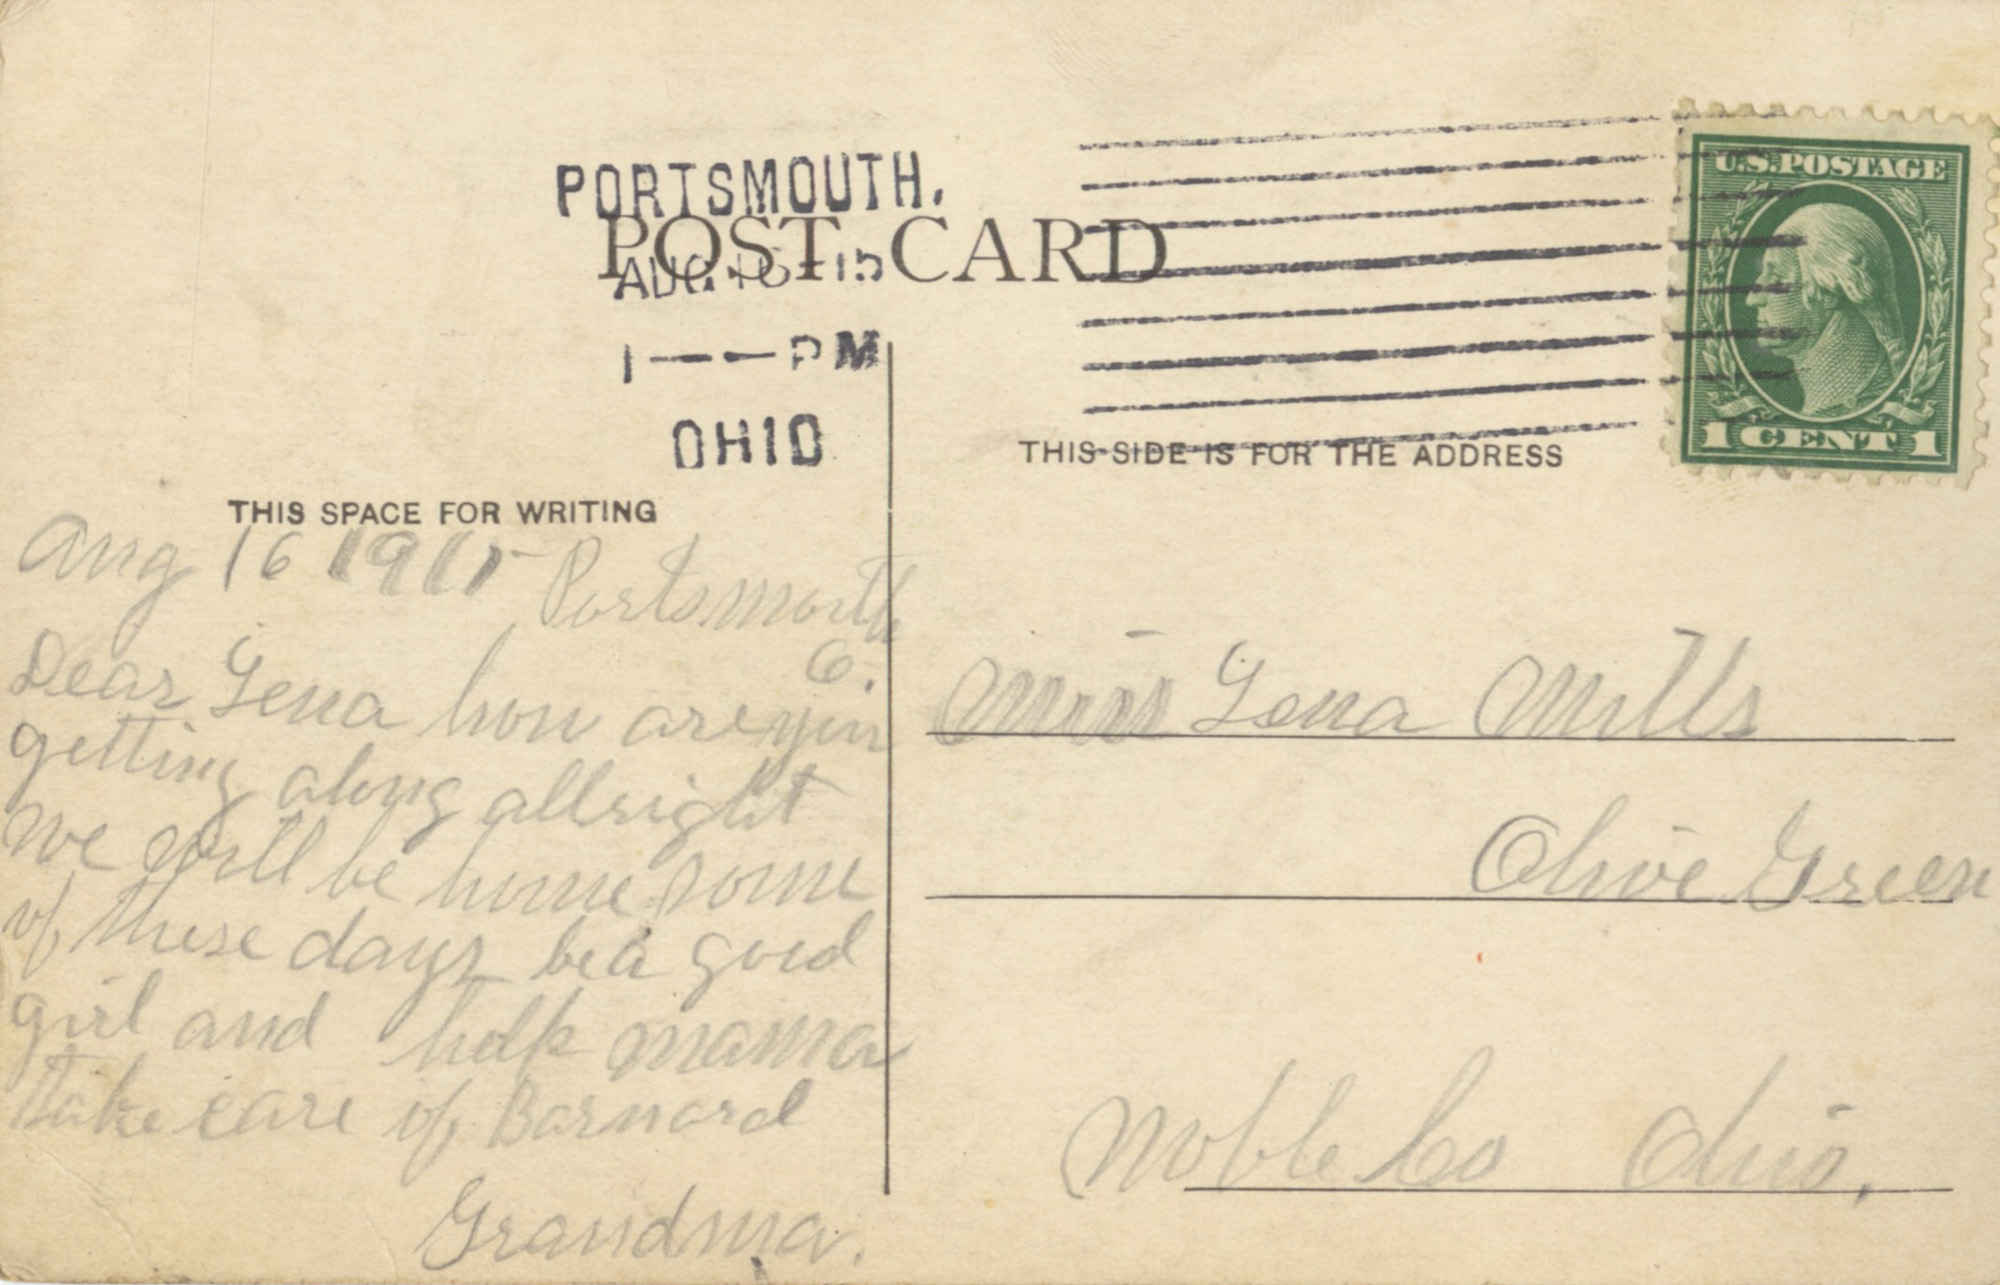 PORTSMOUTH.
POST CARD
AUG 16 15
1 — PM
OHIO
U.S. POSTAGE
1 CENT 1
THIS SIDE IS FOR THE ADDRESS
THIS SPACE FOR WRITING
Aug 16 1915 Portsmouth
O.
Dear Lena how are you
getting along allright
we will be home some
of these days be a good
girl and help mama
take care of Barnard
Grandma.
Miss Lena Mills
Olive Green
Noble Co Ohio.